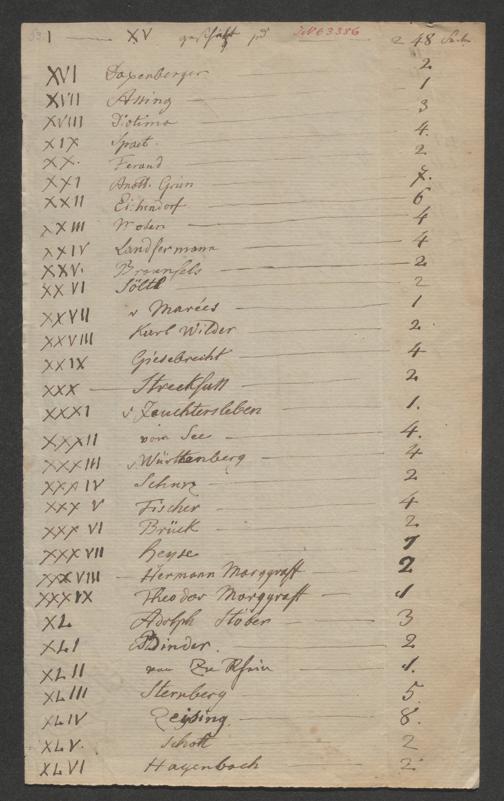 I — XV geschickt pr — JN 63386 — 248
XVI Daxenberger — 2
XVII Assing — 1
XVIII Diotima — 3
XIX Spaet. — 4.
XX. Ferand — 2
XXI Anast. Grün — 7.
XXII Eichendorf — 6
XXIII Noden — 4
XXIV Landfermann — 4
XXV. Braunfels — 2
XXVI Söltl — 2
XXVII v Marées — 1
XXVIII Karl Wilder — 2.
XXIX Giesebrecht — 4
XXX — Streckfuß — 2
XXXI v Feuchtersleben — 1.
XXXII vom See — 4.
XXXIII v. Württemberg — 4
XXXIV Schurz — 2
XXXV Fischer — 4
XXXVI Brück — 2
XXXVII Heyse — 7
XXXVIII — Hermann Marggraff — 2
XXXIX Theodor Marggraff — 1
XL Adolph Stöber — 3
XLI Binder. — 2
XLII von Zu Rhein — 1.
XLIII Sternberg — 5
XLIV Zeising — 8.
XLV. Schott — 2
XLVI Hagenbach — 2